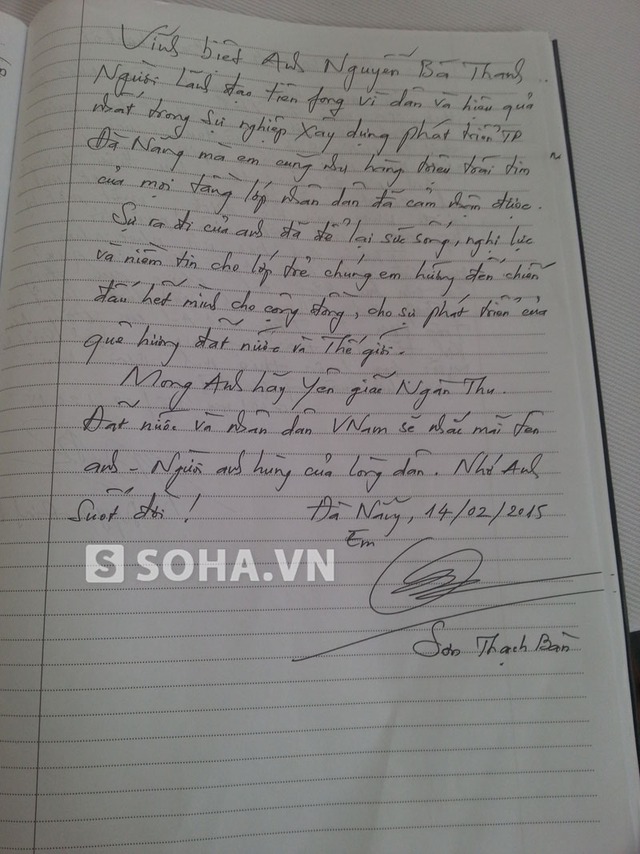 Vĩnh biệt Anh Nguyễn Bá Thanh..
Người Lãnh đạo tiên fong vì dân và hiệu quả
nhất trong sự nghiệp xây dựng phát triển TP
Đà Nẵng mà em cũng như hàng triệu trái tim
của mọi tầng lớp nhân dân đã cảm nhận được.
Sự ra đi của anh đã để lại sức sống, nghị lực
và niềm tin cho lớp trẻ chúng em hướng đến chiến
đấu hết mình cho cộng đồng, cho sự phát triển của
quê hương đất nước và Thế giới.
Mong Anh hãy Yên giấc Ngàn Thu.
Đất nước và nhân dân VNam sẽ nhắc mãi tên
anh - Người anh hùng của lòng dân. Nhớ Anh
Suốt đời! Đà Nẵng, 14/02/2015
Em
S SOHA.VN
Sơn Thạch Bàn